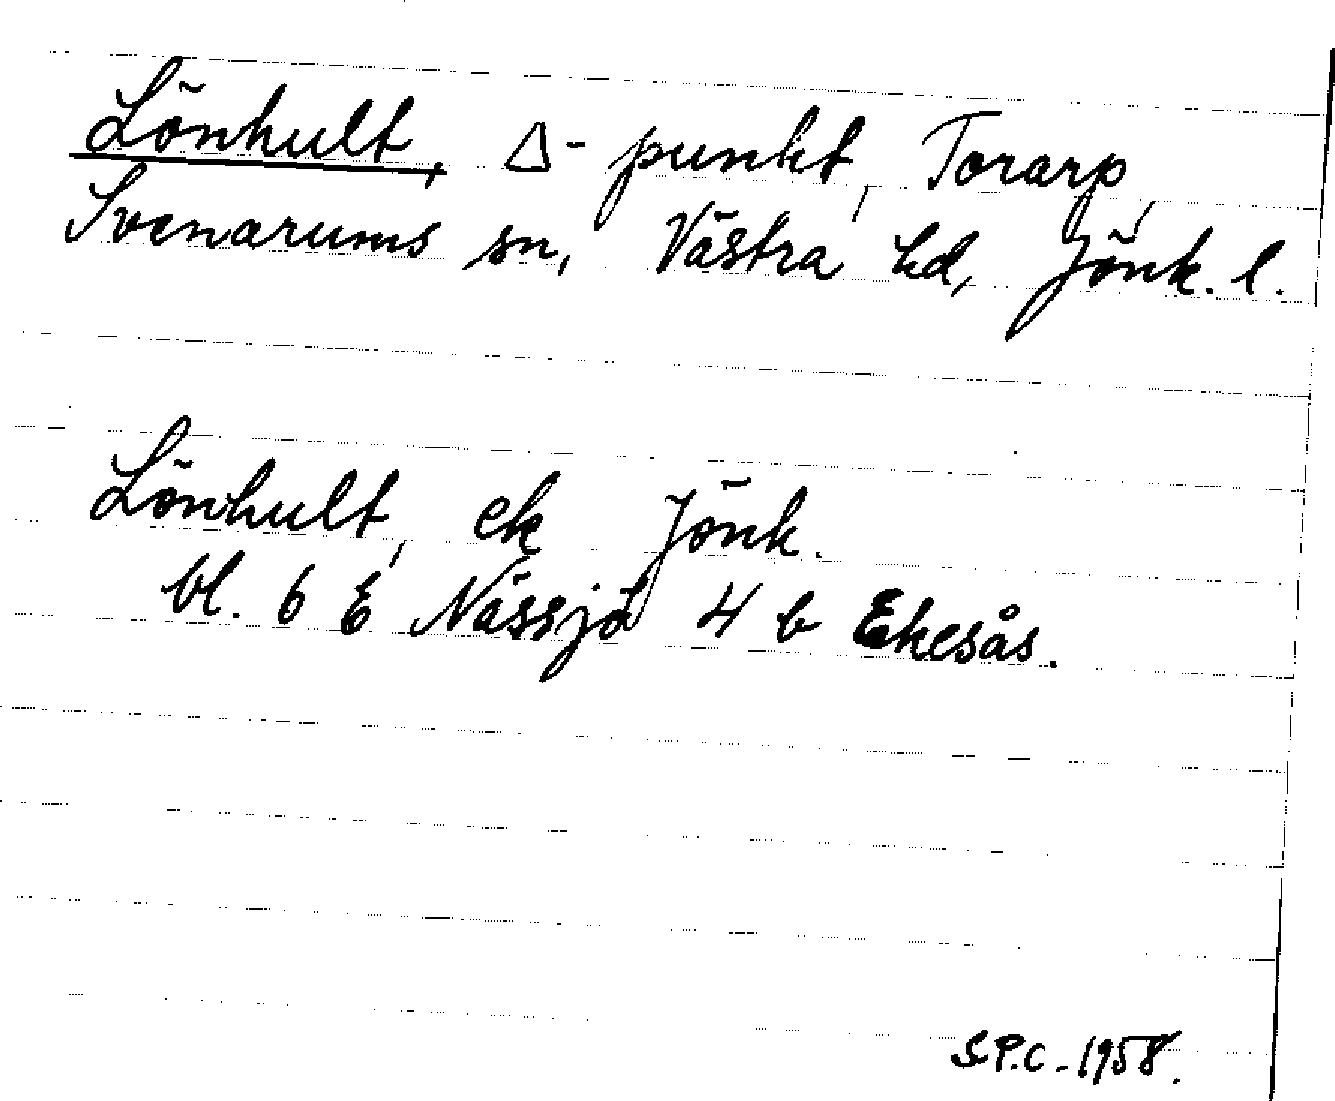 Lönhult, Δ-punkt, Torarp,
Svenarums sn, Västra hd, Jönk. l.
Lönhult, ek Jönk.
bl. 6 E Nässjö 4 b Ekesås.
S.P.C. - 1958.